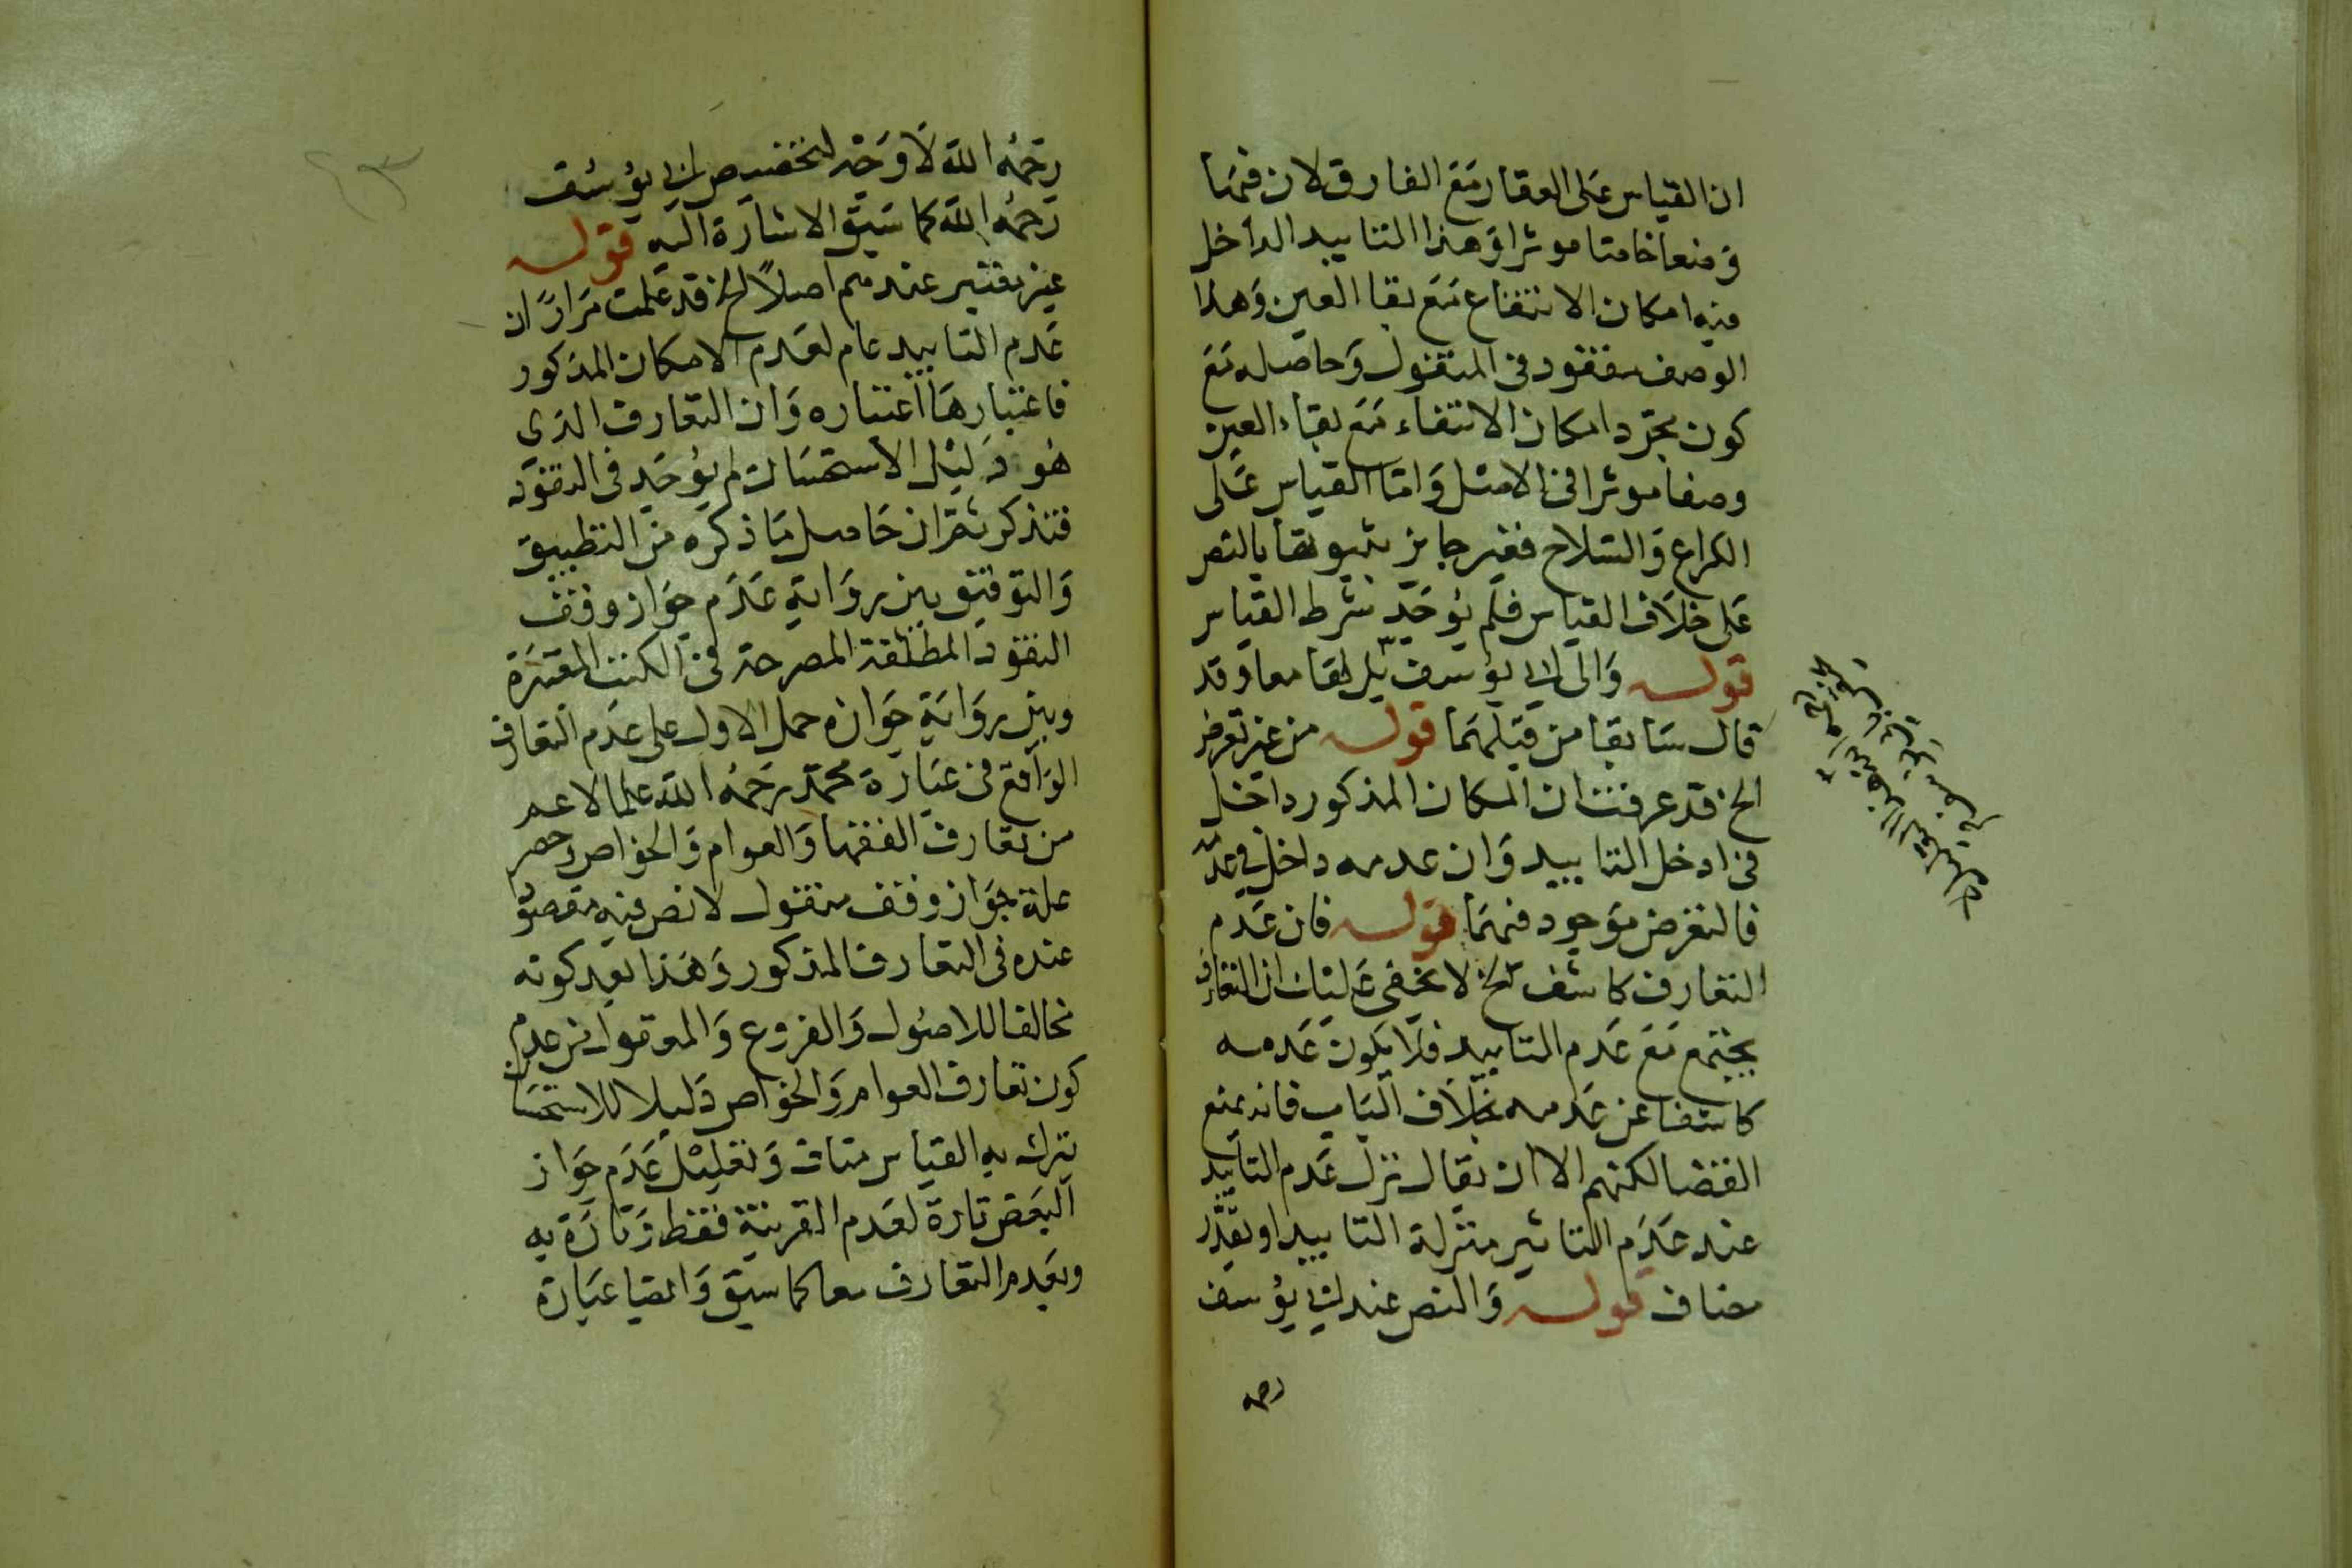 ان القياس على العقار مع الفارق لان فيها
وصفا خاصا موثرا وهذا التابيد الداخل
فيه امكان الانتفاع مع بقا العين وهذا
الوصف مفقود فى المنقول وحاصله منع
كون مجرد امكان الانتفاء مع بقاء العين
وصفا موثرا فى الاصل واما القياس على
الكراع والسلاح فغير جايز ثبوتها بالنص
على خلاف القياس فلم يوجد شرط القياس
قوله والى ابى يوسف بل لهما معا وقد
قال سابقا من قبلهما قوله من غير تعرض
الخ قد عرفت ان المكان المذكور داخل
فى ادخل التابيد وان عدمه داخل فى عدمه
فالتعرض موجود فيهما قوله فان عدم
التعارف كاشف الخ لا يخفى عليك ان التعارف
يجتمع مع عدم التابيد فلا يكون عدمه
كاشفا عن عدمه بخلاف الباب فانه يمنع
القضا لكنهم الا ان يقال نزل عدم التابيد
عند عدم التاثير منزلة التابيد او يقدر
مضاف قوله والنص عند ابى يوسف
رحمه
رحمه الله لا وجه لتخصيص ابى يوسف
رحمه الله كما سبق الاشارة اليه قوله
غير معتبر عندهم اصلاً الخ قد علمت مراراً ان
عدم التابيد عام لعدم الامكان المذكور
فاعتبارها اعتباره وان التعارف الذى
هو دليل الاستحسان لم يوجد فى النقود
فتذكر ثم ان حاصل ما ذكره من التطبيق
والتوفيق بين رواية عدم جواز وقف
النقود المطلقة المصرحة فى الكتب المعتبرة
وبين رواية جوازه حمل الاول على عدم التعارف
الواقع فى عبارة محمد رحمه الله على الاعم
من تعارف الفقها والعوام والخواص وحصر
علة جواز وقف منقول لا نص فيه مقصود
عنده فى التعارف المذكور وهذا بعد كونه
مخالفا للاصول والفروع والمعقول من عدم
كون تعارف العوام والخواص دليلا للاستحسان
يترك به القياس مناف وتعليل عدم جواز
البعض تارة لعدم القرينة فقط وتارة به
وبعدم التعارف معا كما سبق وايضا عبارة